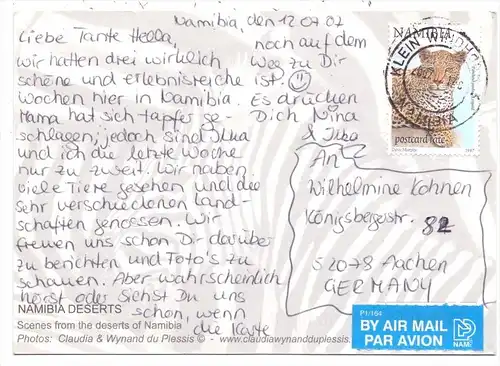 Namibia, den 12 07 02
Liebe Tante Hella,
wir hatten drei wirklich
schöne und erlebnisreiche
Wochen hier in Namibia.
Mama hat sich tapfer ge-
schlagen, jedoch sind Ilka
und ich die letzte Woche
nur zu zweit. Wir haben
viele Tiere gesehen und die
sehr verschiedenen Land-
schaften genossen. Wir
freuen uns schon Dir darüber
zu berichten und Foto's zu
schauen. Aber wahrscheinlich
hörst oder siehst Du uns
schon, wenn
die Karte
noch auf dem
Weg zu Dir
ist. ☺
Es drücken
Dich Nina
& Ilka
NAMIBIA
KLEIN WINDHOEK
postcard rate
1997
An
Wilhelmine Kohnen
Königsbergerstr. 82
52078 Aachen
GERMANY
NAMIBIA DESERTS
Scenes from the deserts of Namibia
Photos: Claudia & Wynand du Plessis © - www.claudiawynandduplessis.
P1/164
BY AIR MAIL
PAR AVION
NAM